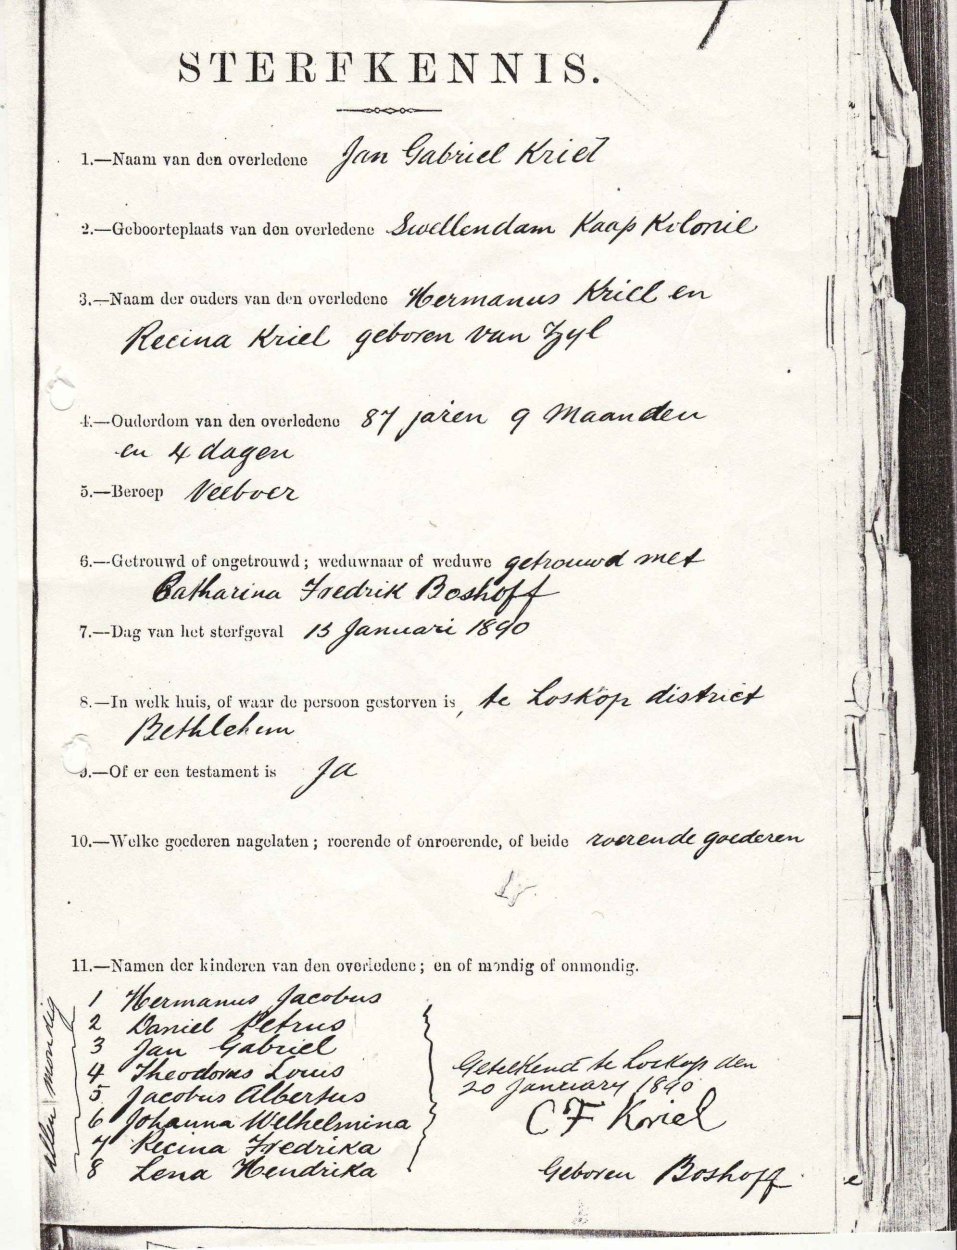 STERFKENNIS.
1.—Naam van den overledene Jan Gabriel Kriel
2.—Geboorteplaats van den overledene Swellendam Kaap Kolonie
3.—Naam der ouders van den overledene Hermanus Kriel en
Recina Kriel geboren van Zyl
4.—Ouderdom van den overledene 87 jaren 9 Maanden
en 4 dagen
5.—Beroep Veeboer
6.—Getrouwd of ongetrouwd; weduwnaar of weduwe getrouwd met
Catharina Fredrik Boshoff
7.—Dag van het sterfgeval 13 Januari 1890
8.—In welk huis, of waar de persoon gestorven is, te Loskop district
Bethlehem
9.—Of er een testament is Ja
10.—Welke goederen nagelaten; roerende of onroerende, of beide roerende goederen
11.—Namen der kinderen van den overledene; en of mondig of onmondig.
allen mondig
1 Hermanus Jacobus
2 Daniel Petrus
3 Jan Gabriel
4 Theodorus Louis
5 Jacobus Albertus
6 Johanna Welhelmina
7 Recina Fredrika
8 Lena Hendrika
Geteekend te Loskop den
20 January 1890
C F Kriel
Geboren Boshoff